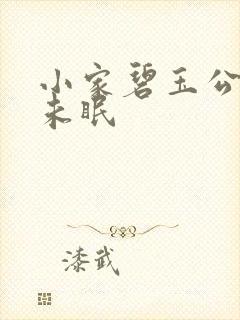 小家碧玉公
未眠
漆武